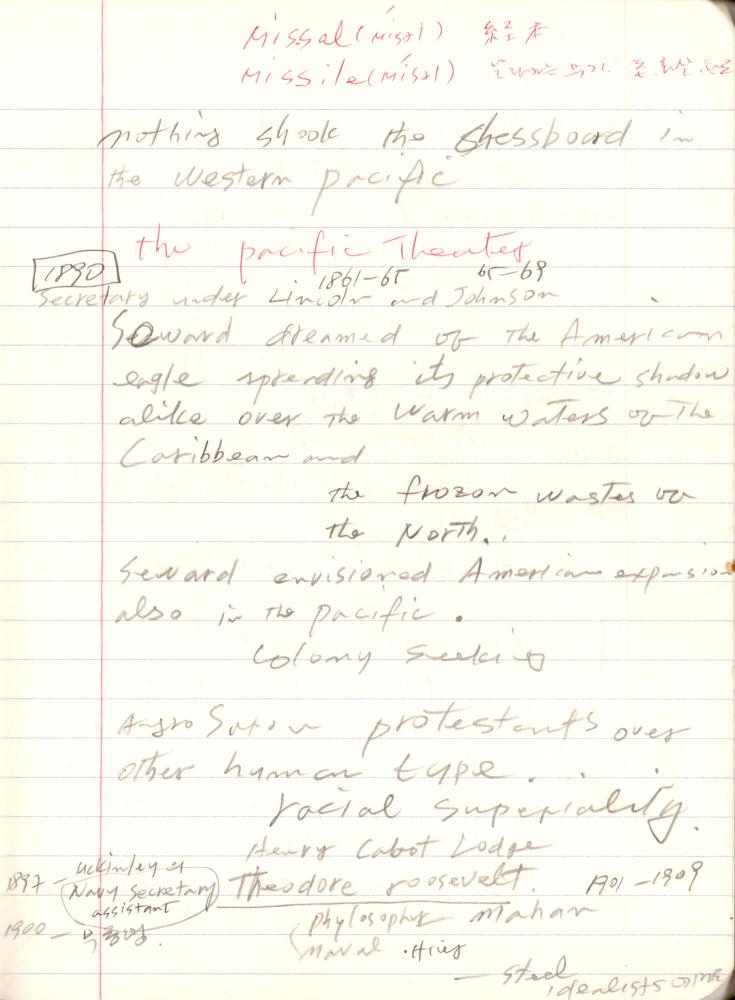 Missal (misəl) 経
Missile (misəl)
nothing shook the chessboard in
the western pacific
the pacific Theater
1890
1861-65 65-69
Secretary under Lincoln and Johnson
Seward dreamed of the American
eagle spreading its protective shadow
alike over the warm waters of the
Caribbean and
the frozon wastes of
the North..
Seward envisioned American expansion
also in the pacific.
Colony seeking
Anglo Saxon protestants over
other human type...
racial superiality.
Henry Cabot Lodge
1897 - Mckinley
Navy Secretary Theodore roosevelt. 1901-1909
assistant
1900 -
phylosopher Mahan
naval
- steel
idealists